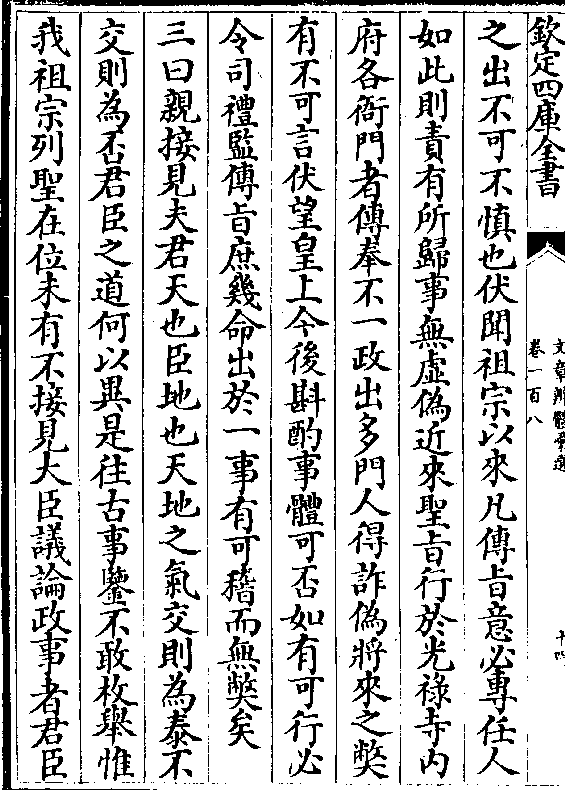 欽定四庫全書
文章辨體彙選
卷一百八
十四
之出不可不慎也伏聞祖宗以來凡傳旨意必專任人
如此則責有所歸事無虛偽近來聖旨行於光祿寺內
府各衙門者傳奉不一政出多門人得詐偽將來之獘
有不可言伏望皇上今後斟酌事體可否如有可行必
令司禮監傳旨庶幾命出於一事有可稽而無獘矣
三曰親接見夫君天也臣地也天地之氣交則為泰不
交則為否君臣之道何以異是往古事鑒不敢枚舉惟
我祖宗列聖在位未有不接見大臣議論政事者君臣